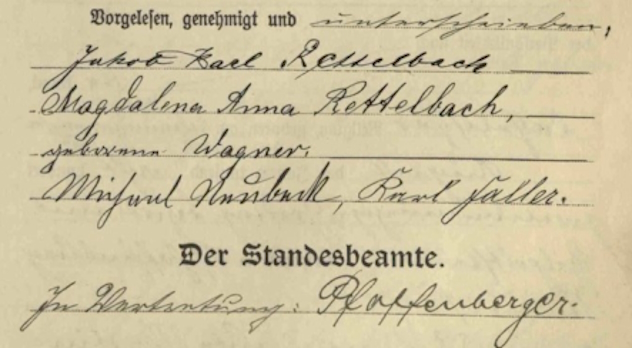 Vorgelesen, genehmigt und unterschrieben,
Jakob Karl Rettelbach
Magdalena Anna Rettelbach,
geborene Wagner.
Michael Neubeck, Karl Faller.
Der Standesbeamte.
In Vertretung: Pfaffenberger.